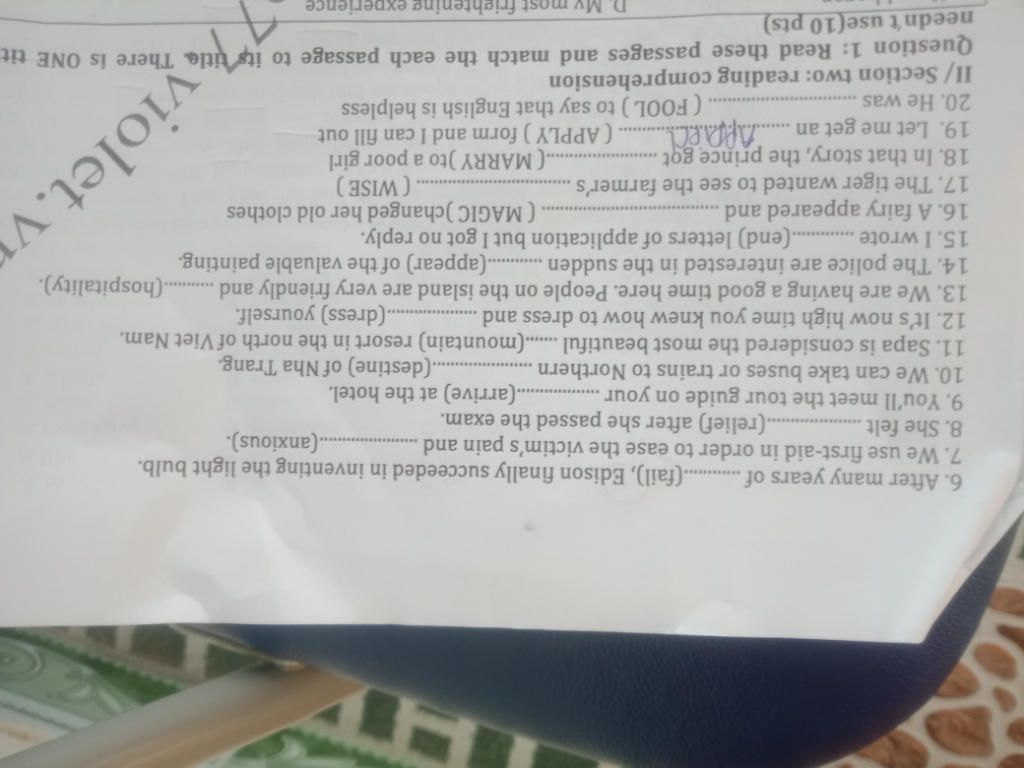 6. After many years of ............(fail), Edison finally succeeded in inventing the light bulb.
7. We use first-aid in order to ease the victim's pain and ....................(anxious).
8. She felt ...................(relief) after she passed the exam.
9. You'll meet the tour guide on your .................(arrive) at the hotel.
10. We can take buses or trains to Northern .....................(destine) of Nha Trang.
11. Sapa is considered the most beautiful .......(mountain) resort in the north of Viet Nam.
12. It's now high time you knew how to dress and ...................(dress) yourself.
13. We are having a good time here. People on the island are very friendly and ..........(hospitality).
14. The police are interested in the sudden ............(appear) of the valuable painting.
15. I wrote .............(end) letters of application but I got no reply.
16. A fairy appeared and ...................................... ( MAGIC )changed her old clothes
17. The tiger wanted to see the farmer's ................................. ( WISE )
18. In that story, the prince got .......................( MARRY )to a poor girl
19. Let me get an .................................... ( APPLY ) form and I can fill out
20. He was ................................ ( FOOL ) to say that English is helpless
II/ Section two: reading comprehension
Question 1: Read these passages and match the each passage to its title. There is ONE
needn't use(10 pts)
D. My most frightening experience
violet.